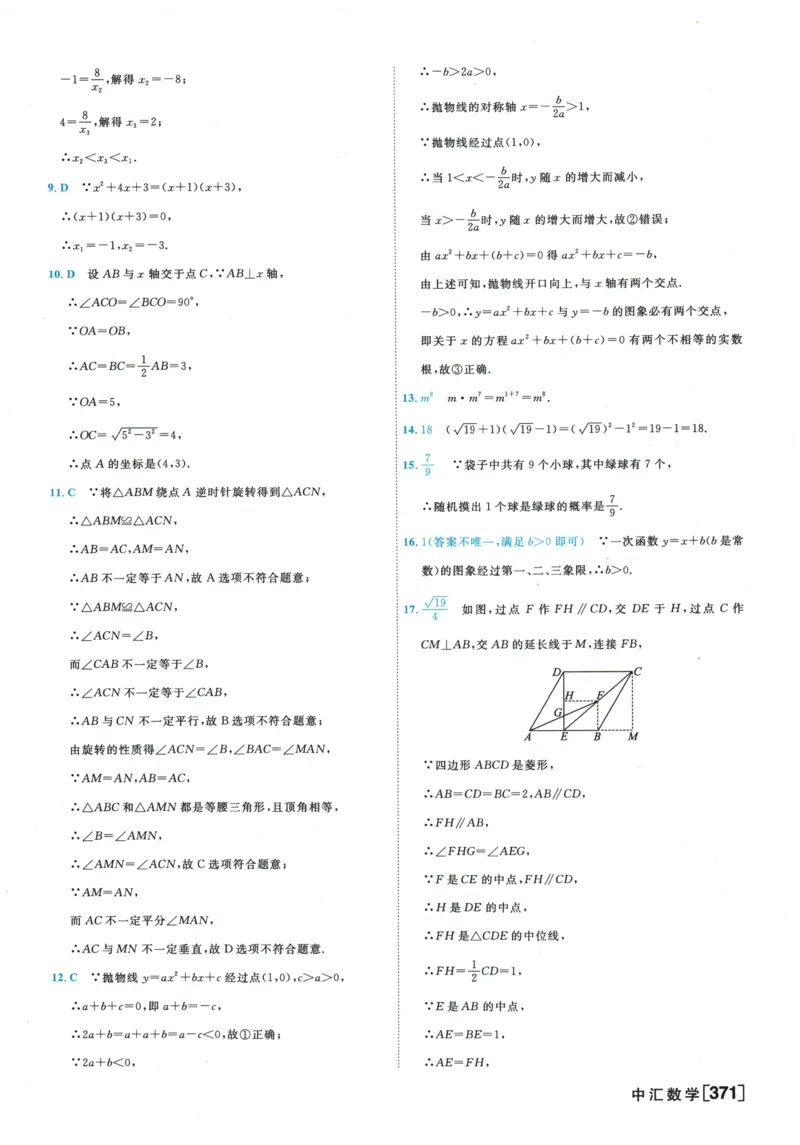 -1=8/x₂,解得 x₂=-8;
4=8/x₃,解得 x₃=2;
∴x₂<x₃<x₁.
9. D ∵x²+4x+3=(x+1)(x+3),
∴(x+1)(x+3)=0,
∴x₁=-1,x₂=-3.
10. D 设 AB 与 x 轴交于点 C,∵AB⊥x 轴,
∴∠ACO=∠BCO=90°,
∵OA=OB,
∴AC=BC=1/2AB=3,
∵OA=5,
∴OC=√(5²-3²)=4,
∴点 A 的坐标是(4,3).
11. C ∵将△ABM绕点 A 逆时针旋转得到△ACN,
∴△ABM≌△ACN,
∴AB=AC,AM=AN,
∴AB 不一定等于 AN,故 A 选项不符合题意;
∵△ABM≌△ACN,
∴∠ACN=∠B,
而∠CAB 不一定等于∠B,
∴∠ACN 不一定等于∠CAB,
∴AB 与 CN 不一定平行,故 B 选项不符合题意;
由旋转的性质得∠ACN=∠B,∠BAC=∠MAN,
∵AM=AN,AB=AC,
∴△ABC 和△AMN 都是等腰三角形,且顶角相等,
∴∠B=∠AMN,
∴∠AMN=∠ACN,故 C 选项符合题意;
∵AM=AN,
而 AC 不一定平分∠MAN,
∴AC 与 MN 不一定垂直,故 D 选项不符合题意.
12. C ∵抛物线 y=ax²+bx+c 经过点(1,0),c>a>0,
∴a+b+c=0,即 a+b=-c,
∴2a+b=a+a+b=a-c<0,故①正确;
∵2a+b<0,
∴-b>2a>0,
∴抛物线的对称轴 x=-b/2a>1,
∵抛物线经过点(1,0),
∴当 1<x<-b/2a时,y 随 x 的增大而减小,
当 x>-b/2a时,y 随 x 的增大而增大,故②错误;
由 ax²+bx+(b+c)=0 得 ax²+bx+c=-b,
由上述可知,抛物线开口向上,与 x 轴有两个交点.
-b>0,∴y=ax²+bx+c 与 y=-b 的图象必有两个交点,
即关于 x 的方程 ax²+bx+(b+c)=0 有两个不相等的实数
根,故③正确.
13. m⁸ m·m⁷=m¹⁺⁷=m⁸.
14. 18 (√19+1)(√19-1)=(√19)²-1²=19-1=18.
15. 7/9 ∵袋子中共有 9 个小球,其中绿球有 7 个,
∴随机摸出 1 个球是绿球的概率是7/9.
16. 1(答案不唯一,满足 b>0 即可) ∵一次函数 y=x+b(b 是常
数)的图象经过第一、二、三象限,∴b>0.
17. √19/4 如图,过点 F 作 FH∥CD,交 DE 于 H,过点 C 作
CM⊥AB,交 AB 的延长线于 M,连接 FB,
D C
H F
G
A E B M
∵四边形 ABCD 是菱形,
∴AB=CD=BC=2,AB∥CD,
∴FH∥AB,
∴∠FHG=∠AEG,
∵F 是 CE 的中点,FH∥CD,
∴H 是 DE 的中点,
∴FH 是△CDE 的中位线,
∴FH=1/2CD=1,
∵E 是 AB 的中点,
∴AE=BE=1,
∴AE=FH,
中汇数学[371]